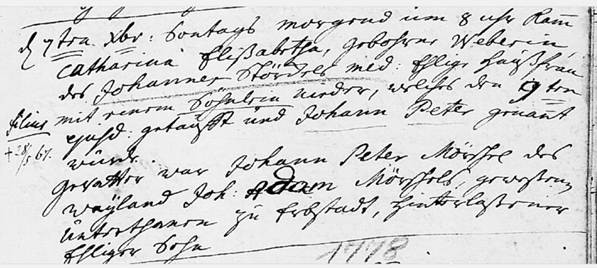 d 7tn. Xbr: Sontags morgend um 8 uhr kam
Catharina Elisabetha, gebohrne Weberin
des Johannes Stördels ehliche Haußfrau
mit einem Söhnlein nieder, welches den 9ten
filius ejusd. getaufft und Johann Peter genant
würde.
Gevatter war Johann Peter Mörschel des
weyland Joh: Adam Mörschels, gewesenen
Unterthanen zu Erbstadt, hinterlassener
Ehliger Sohn
1778